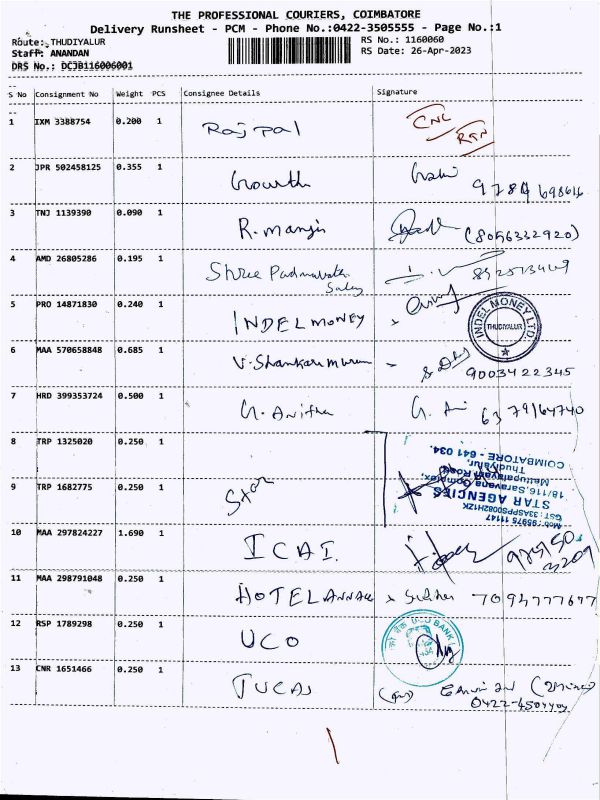 THE PROFESSIONAL COURIERS, COIMBATORE
Delivery Runsheet - PCM - Phone No.:0422-3505555 - Page No.:1
Route: THUDIYALUR RS No.: 1160060
Staff: ANANDAN RS Date: 26-Apr-2023
DRS No.: DCJB116006001
S No Consignment No Weight PCS Consignee Details Signature
1 IXM 3388754 0.200 1 Rajpal CNL
RTN
2 JPR 502458125 0.355 1 Gowrth
3 TNJ 1139390 0.090 1 R. (8056332920)
4 AMD 26805286 0.195 1 Shree
5 PRO 14871830 0.240 1 INDEL MONEY INDEL MONEY LTD. THUDIYALUR
6 MAA 570658848 0.685 1 9003422345
7 HRD 399353724 0.500 1 G. Anitha G. 6379164740
8 TRP 1325020 0.250 1
9 TRP 1682775 0.250 1 Star
Mob : 95975 11147
GST : 33ASPPS0082H1ZK
STAR AGENCIES
18/116, Saravana Complex,
Mettupalayam Road,
Thudiyalur,
COIMBATORE - 641 034.
10 MAA 297824227 1.690 1 ICAI
11 MAA 298791048 0.250 1 HOTEL 7094777677
12 RSP 1789298 0.250 1 UCO UCO BANK
13 CNR 1651466 0.250 1 TUCAS